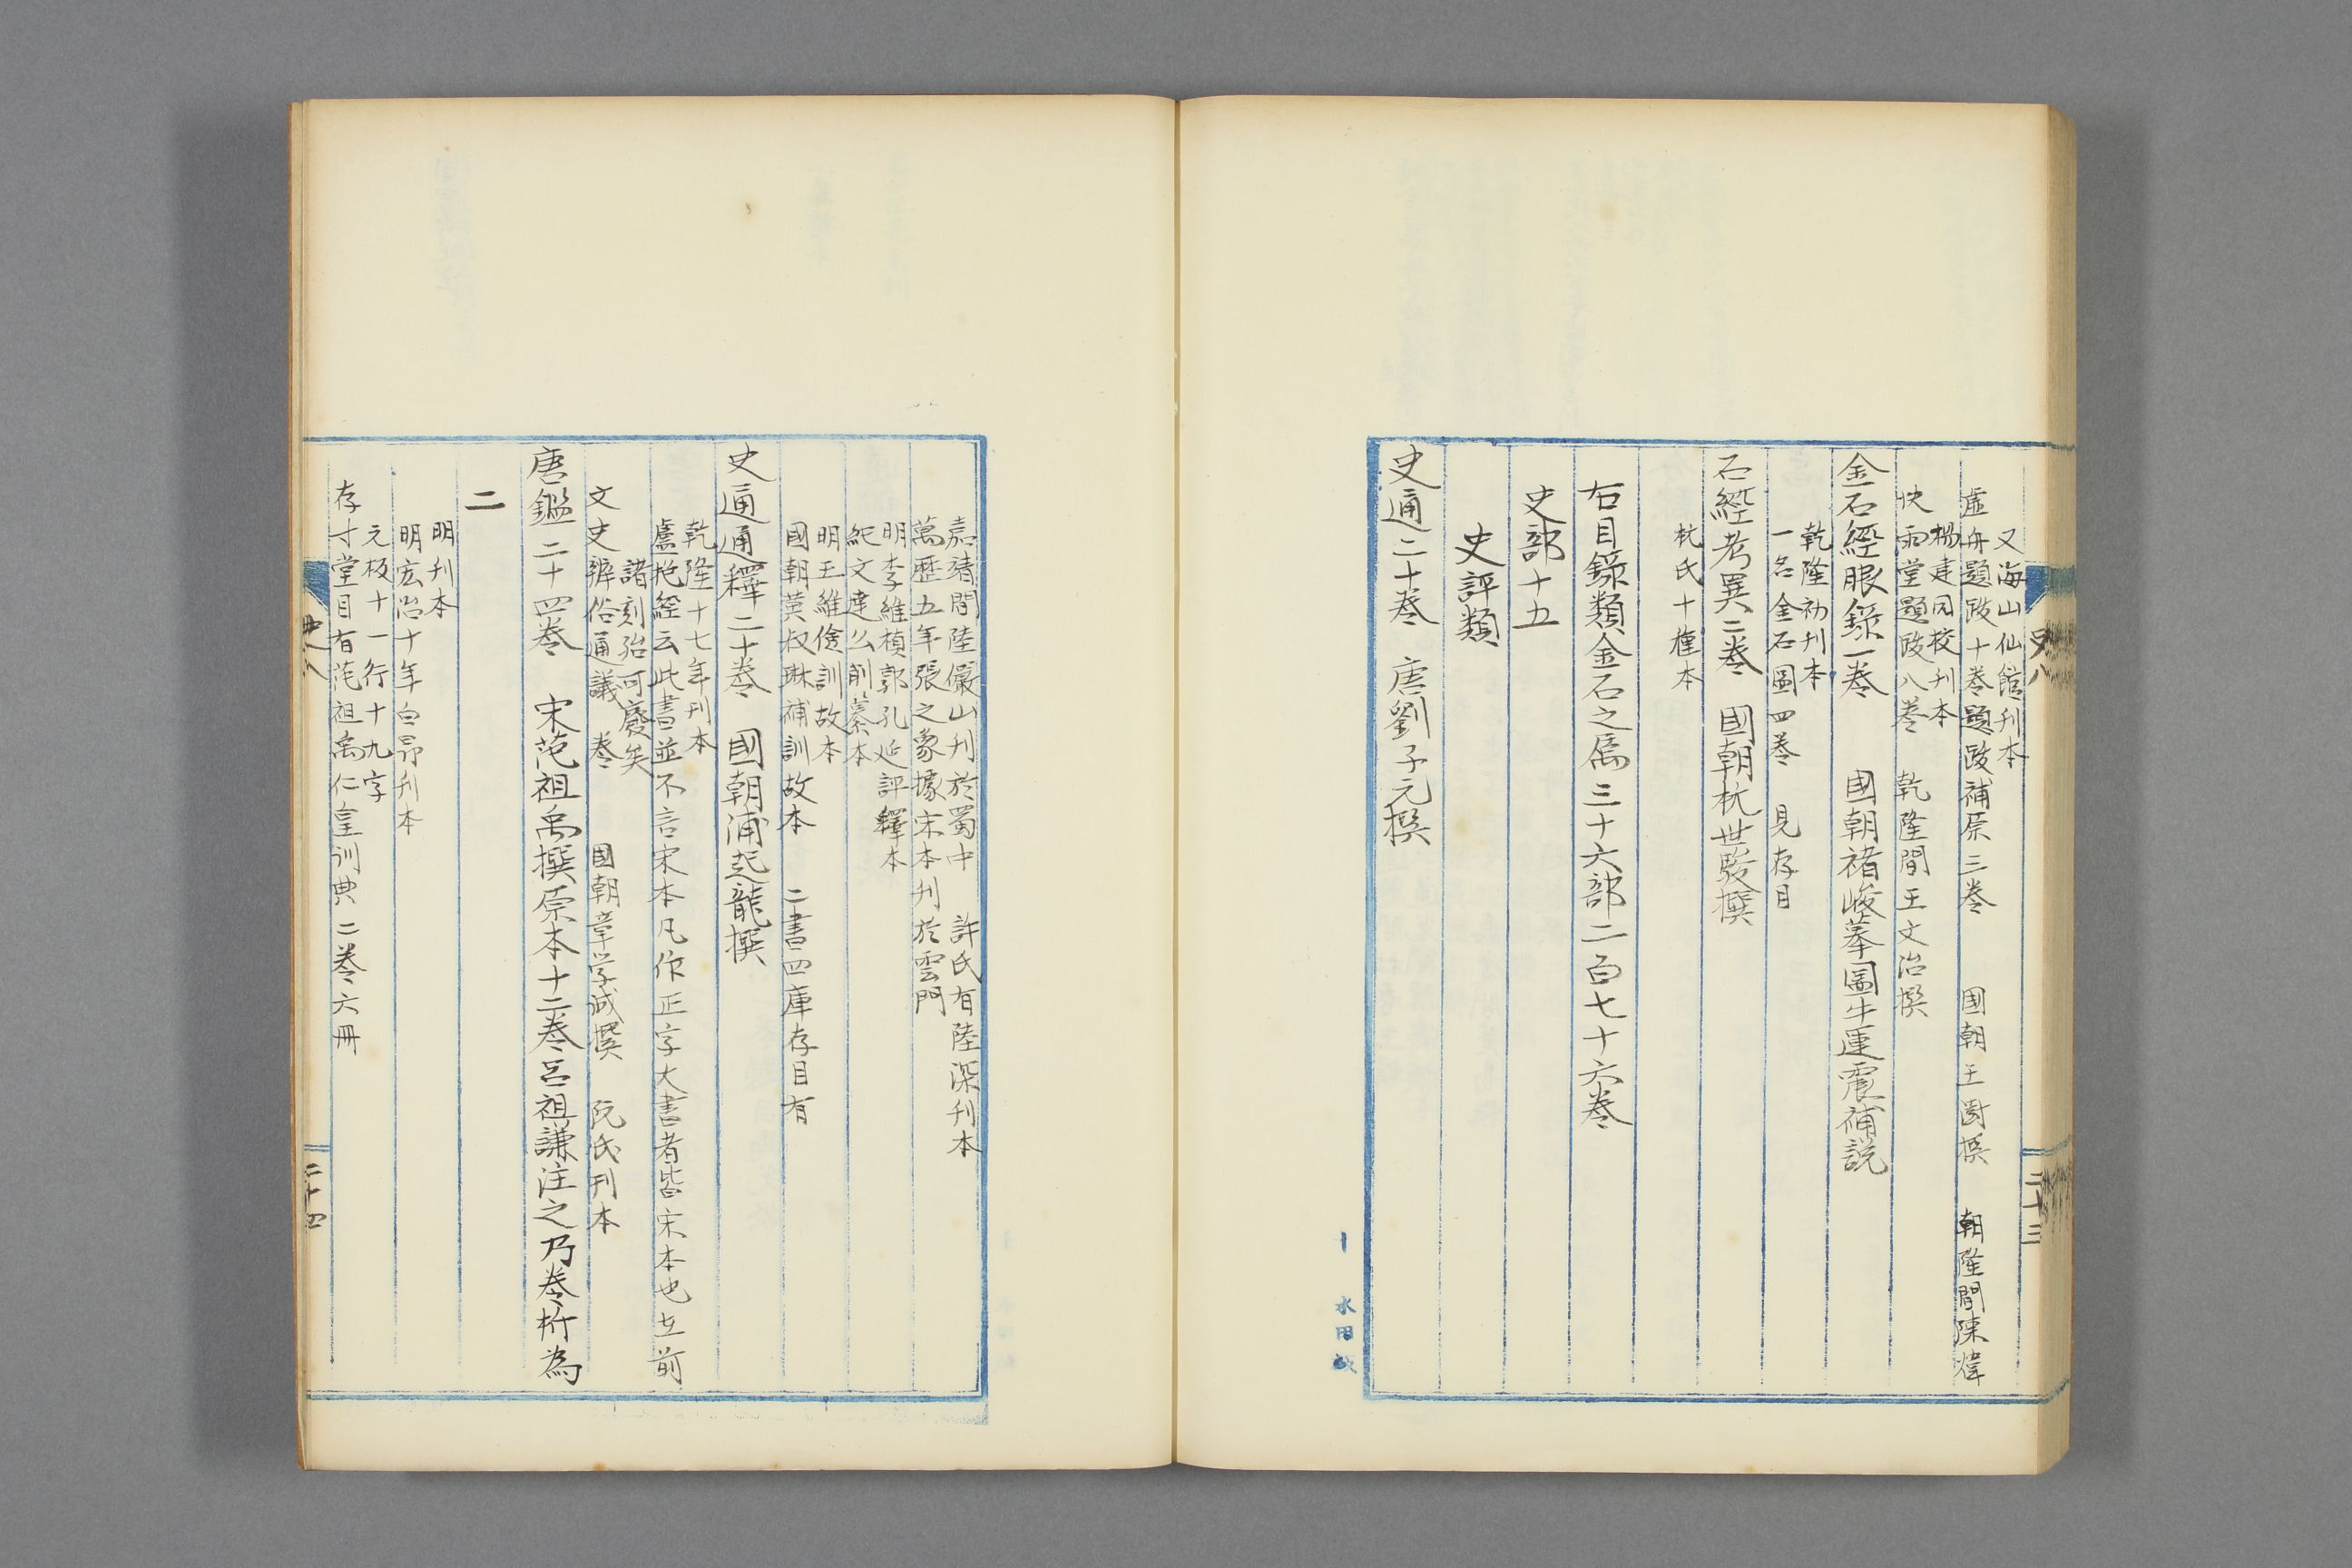 又海山仙館刊本
虛舟題跋十卷題跋補原三卷　國朝王澍撰　朝隆間陳煒
楊建同校刊本
快雨堂題跋八卷　乾隆間王文治撰
金石經眼錄一卷　國朝褚峻摹圖牛運震補説
乾隆初刊本
一名金石圖四卷　見存目
石經考異二卷　國朝杭世駿撰
杭氏十種本
右目錄類金石之屬三十六部二百七十六卷
史部十五
史評類
史通二十卷　唐劉子元撰
史八
二十三
嘉靖間陸儼山刊於蜀中　許氏有陸深刊本
萬歷五年張之象據宋本刊於雲門
明李維楨郭孔延評釋本
紀文達公削蘩本
明王維儉訓故本
國朝黄叔琳補訓故本　二書四庫存目有
史通通釋二十卷　國朝浦起龍撰
乾隆十七年刊本
盧抱經云此書並不言宋本凡作正字大書者皆宋本也立前
諸刻殆可廢矣
文史辨俗通議　卷　國朝章学诚撰　阮氏刊本
唐鑑二十四卷　宋范祖禹撰原本十二卷呂祖謙注之乃卷析為
二
明刊本
明宏治十年白昂刊本
元板十一行十九字
存寸堂目有范祖禹仁皇训典二卷六冊
史八
二十四